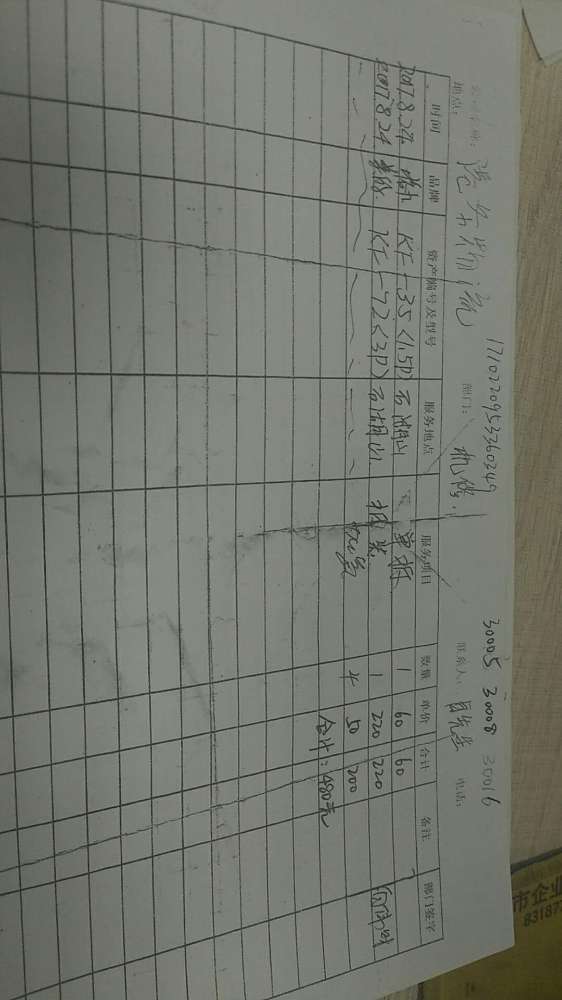 17102209953360349 30005 30008 30016
港务物流 部门: 机修 联系人: 电话:
地点:
时间 品牌 资产编号及型号 服务地点 服务项目 数量 单价 合计 备注 部门签字
2017.8.24 KF-35(1.5P) 石湖山 单拆 1 60 60
2017.8.24 美的 KF-72(3P) 石湖山 拆装 1 220 220
加氟 4 50 200
合计:480元
市企业
8318